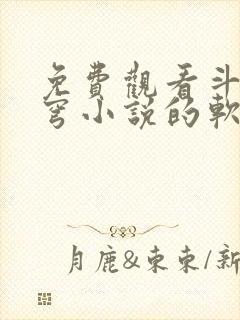 免費觀看斗
穹小説的軟
月鹿&東東/新